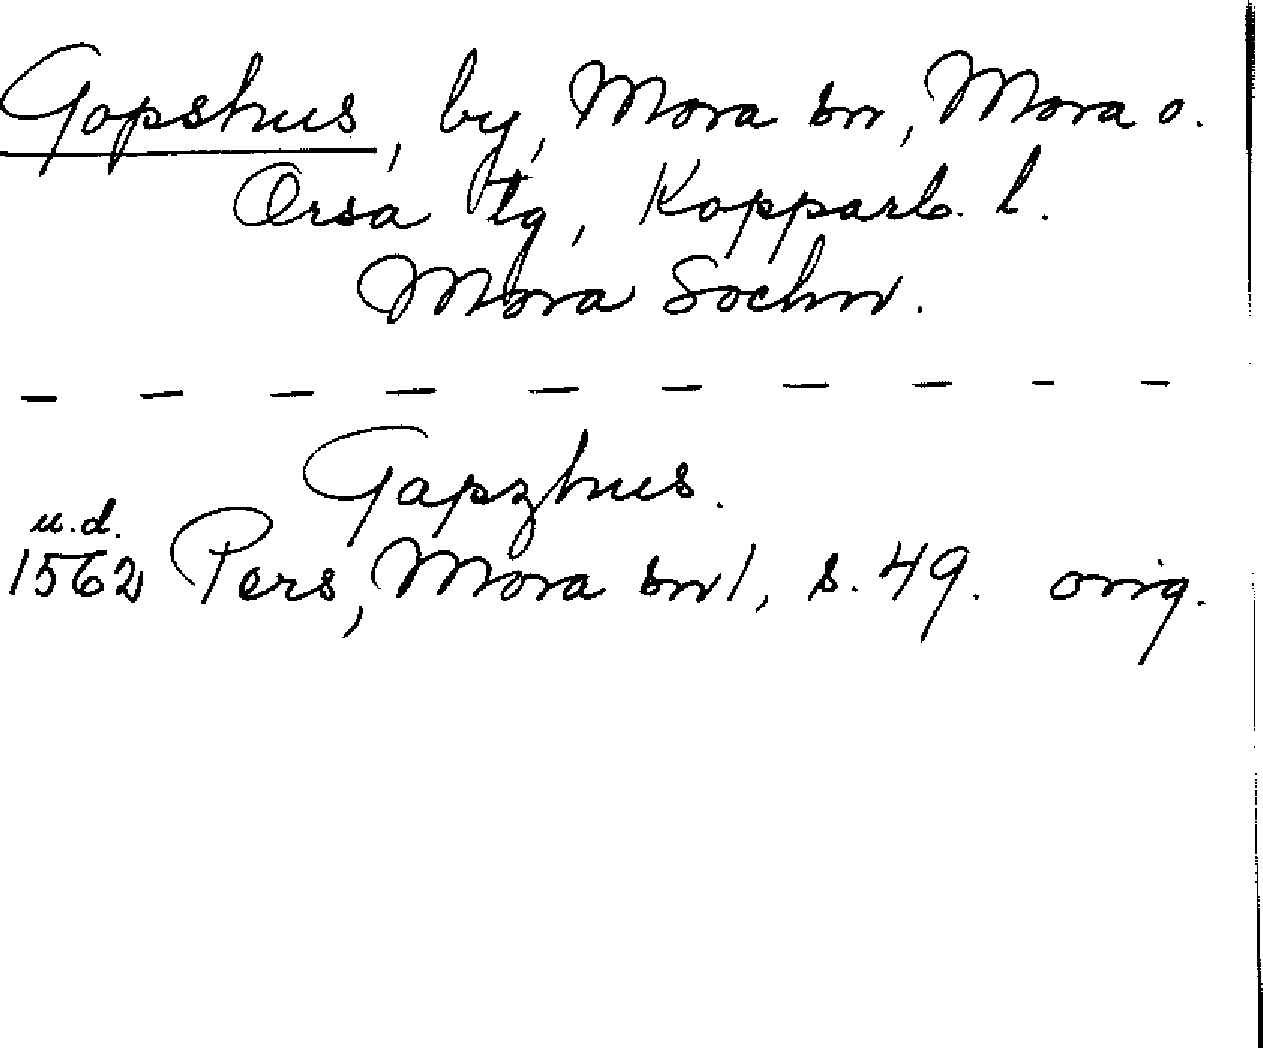 Gopshus, by, Mora sn, Mora o.
Orsa tg, Kopparb. l.
Mora Sochn.
— — — — — — — — — —
Gapzhus.
u.d.
1562 Pers, Mora sn 1, s. 49. orig.